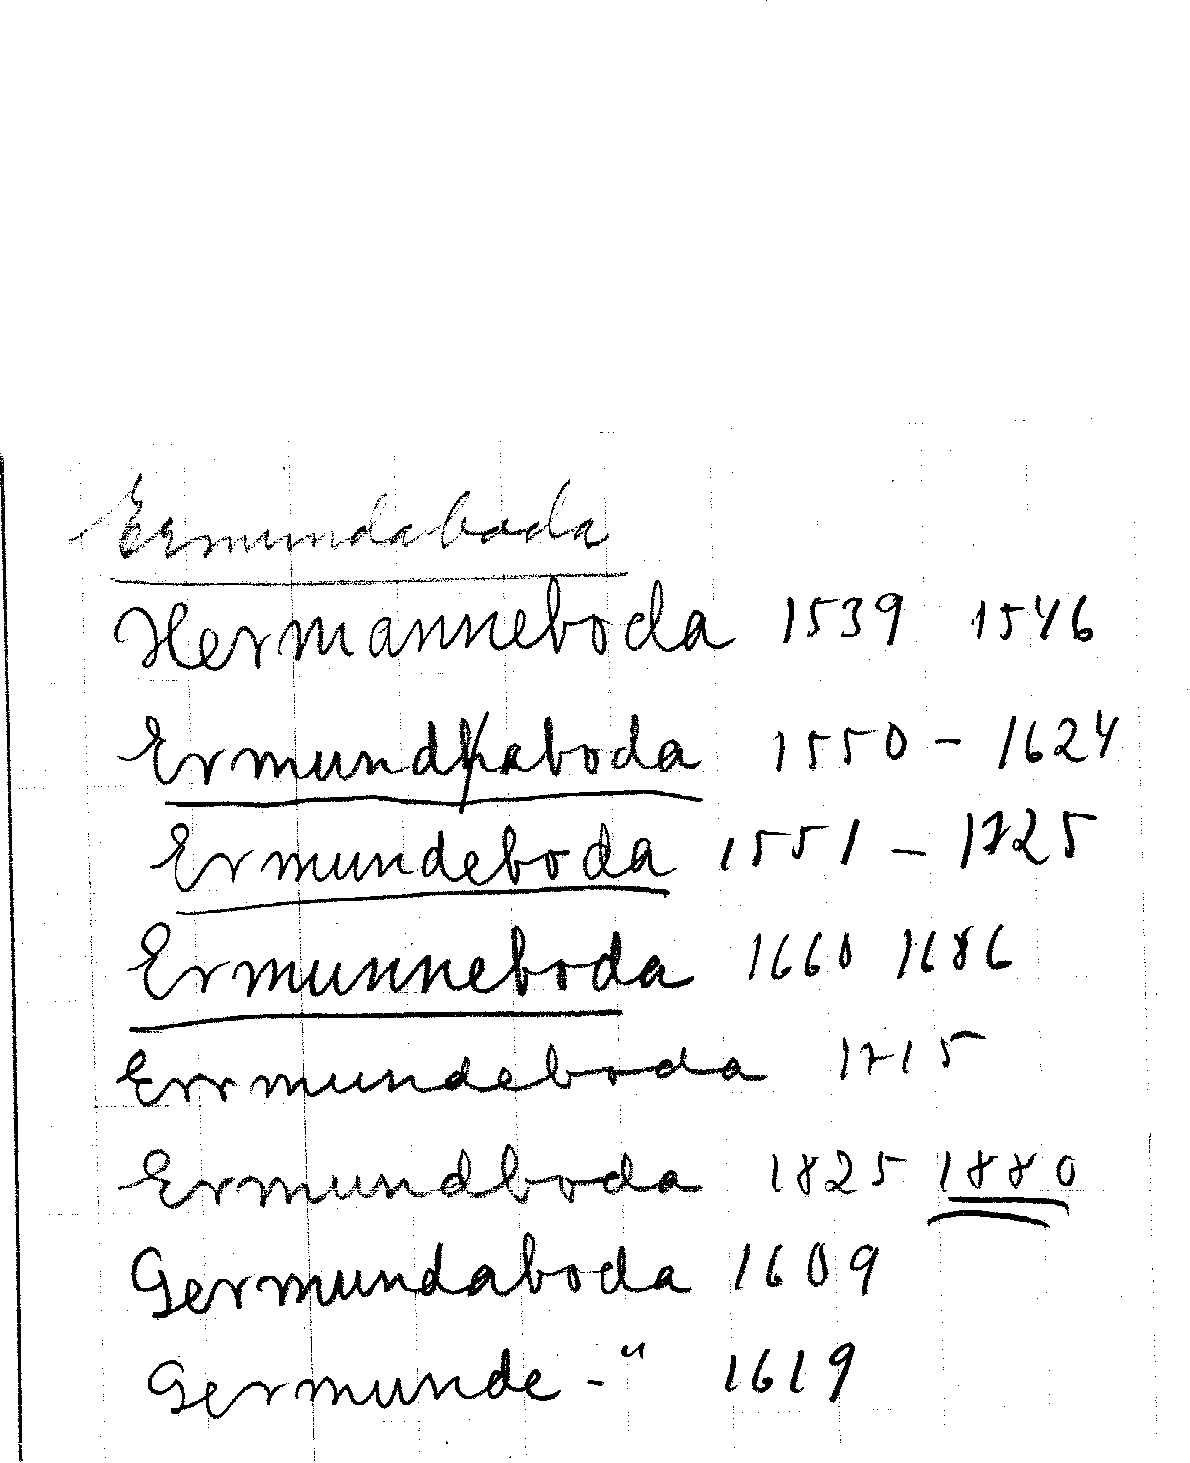 Ermundaboda
Hermanneboda 1539 1546
Ermundaboda 1550 - 1624
Ermundeboda 1551 - 1725
Ermunneboda 1660 1686
Errmundeboda 1715
Ermundboda 1825 1880
Germundaboda 1609
Germunde - " 1619